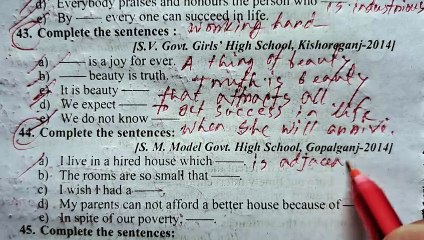 d) Everybody praises and honours the person who is industrious
e) By —— every one can succeed in life. working hard
43. Complete the sentences :
[S.V. Govt. Girls' High School, Kishoreganj-2014]
a) —— is a joy for ever. A thing of beauty
b) —— beauty is truth. Truth is beauty
c) It is beauty —— that attracts all
d) We expect —— to get success in life
e) We do not know —— when she will arrive.
44. Complete the sentences:
[S. M. Model Govt. High School, Gopalganj-2014]
a) I live in a hired house which ——. is adjacen
b) The rooms are so small that ——.
c) I wish I had a ——.
d) My parents can not afford a better house because of —
e) In spite of our poverty, ——.
45. Complete the sentences: